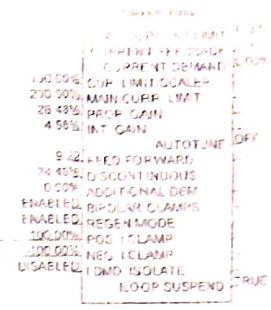 CURRENT LIMIT
CURRENT FEEDBACK
CURRENT DEMAND
100.00% CUR LIMIT SCALER
200.00% MAIN CURR LIMIT
PROP GAIN
INT GAIN
AUTOTUNE OFF
FEED FORWARD
DISCONTINUOUS
0.00% ADDITIONAL DEM
ENABLED BIPOLAR CLAMPS
ENABLED REGEN MODE
100.00% POS I CLAMP
-100.00% NEG I CLAMP
DISABLED I DMD ISOLATE
ILOOP SUSPEND TRUE